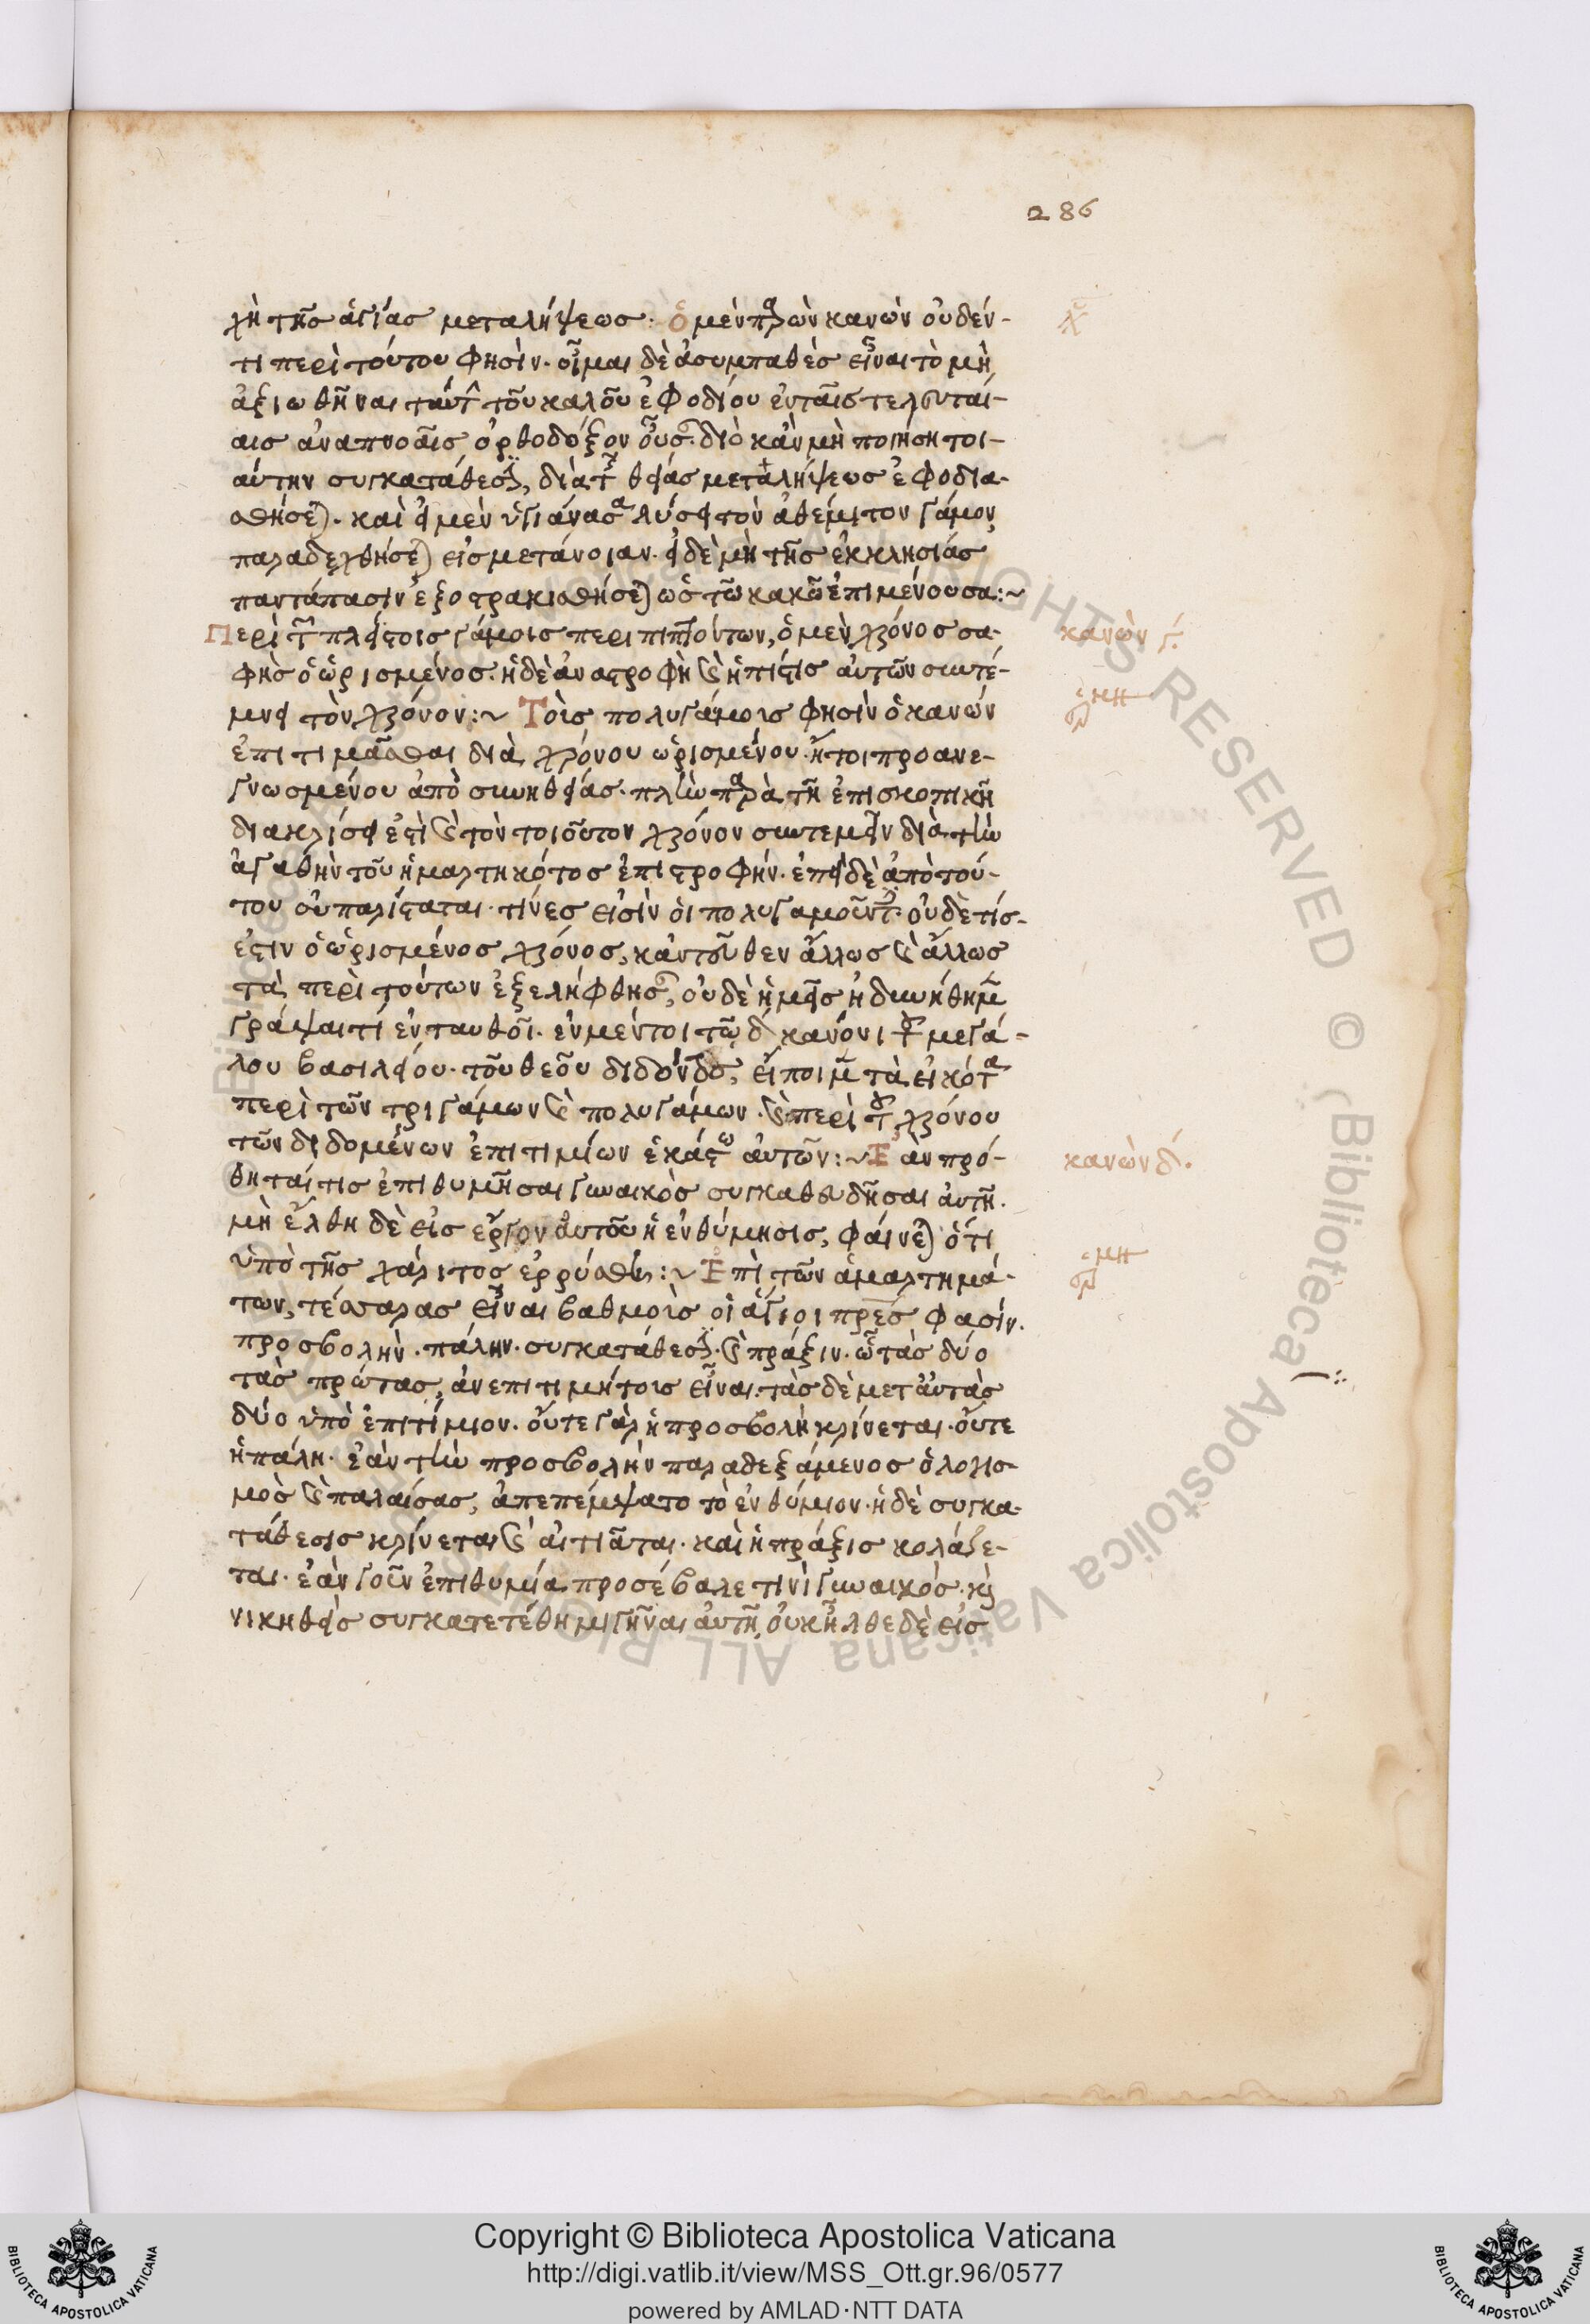 286
χὴ τῆς ἁγίας μεταλήψεως. ὁ μὲν παρὼν κανὼν οὐδέν-
τι περὶ τούτου φησίν. οἶμαι δὲ ἀσυμπαθὲς εἶναι τὸ μὴ
ἀξιωθῆναι ταύτ τοῦ καλοῦ ἐφοδίου ἐν ταῖς τελευταί-
αις ἀναπνοαῖς ὀρθόδοξον οὖσ. διὸ κἂν μὴ ποιήση τοι-
αύτην συγκατάθεσιν, διὰ τῆς θείας μεταλήψεως ἐφοδια-
σθήσεται. καὶ εἰ μὲν ὑγιάνασα λύσει τὸν ἀθέμιτον γάμον
παραδεχθήσεται εἰς μετάνοιαν. εἰ δὲ μὴ τῆς ἐκκλησίας
παντάπασιν ἐξοστρακισθήσεται ὡς τῶ κακῶ ἐπιμένουσα:~
Περὶ τῶν πλείστοις γάμοις περιπιπτόντων, ὁ μὲν χρόνος σα-
φὴς ὁ ὡρισμένος. ἡ δὲ ἀναστροφὴ καὶ ἡ πίστις αὐτῶν συντέ-
μνει τὸν χρόνον:~ Τοῖς πολυγάμοις φησὶν ὁ κανὼν
ἐπιτιμᾶσθαι διὰ χρόνου ὡρισμένου. ἤτοι προανε-
γνωσμένου ἀπὸ συνηθείας. πλὴν παρὰ τῆ ἐπισκοπικῆ
διακρίσει ἐστὶ καὶ τὸν τοιοῦτον χρόνον συντεμεῖν διὰ τὴν
ἀγαθὴν τοῦ ἡμαρτηκότος ἐπιστροφήν. ἐπεὶ δὲ ἀπὸ τού-
του οὐ παρίσταται. τίνες εἰσὶν οἱ πολυγαμοῦντες. οὐδὲ τίς-
ἐστιν ὁ ὡρισμένος χρόνος, κἀντεῦθεν ἄλλως καὶ ἄλλως
τὰ περὶ τούτων ἐξελήφθησαν, οὐδὲ ἡμεῖς ἠδυνήθημεν
γράψαι τί ἐνταυθοῖ. ἐν μέντοι τῶ δ κανόνι τοῦ μεγά-
λου βασιλείου. τοῦ θεοῦ διδόντος, εἴποιμεν τὰ εἰκότα
περὶ τῶν τριγάμων καὶ πολυγάμων. καὶ περὶ τοῦ χρόνου
τῶν διδομένων ἐπιτιμίων ἑκάστω αὐτῶν:~ Ἐὰν πρό-
θηταί τις ἐπιθυμῆσαι γυναικὸς συγκαθευδῆσαι αὐτῆ.
μὴ ἔλθη δὲ εἰς ἔργον αὐτοῦ ἡ ἐνθύμησις, φαίνεται ὅτι
ὑπὸ τῆς χάριτος ἐρρύσθη:~ Ἐπὶ τῶν ἁμαρτημά-
των, τέσσαρας εἶναι βαθμοὺς οἱ ἅγιοι πρες φασίν.
προσβολὴν. πάλην. συγκατάθεσιν. καὶ πρᾶξιν. ὧν τὰς δύο
τὰς πρώτας, ἀνεπιτιμήτους εἶναι. τὰς δὲ μετ αὐτὰς
δύο ὑπὸ ἐπιτίμιον. οὔτε γὰρ ἡ προσβολὴ κρίνεται. οὔτε
ἡ πάλη. ἐὰν τὴν προσβολὴν παραδεξάμενος ὁ λογισ-
μὸς καὶ παλαίσας, ἀπεπέμψατο τὸ ἐνθύμιον. ἡ δὲ συγκα-
τάθεσις κρίνεται καὶ αἰτιᾶται. καὶ ἡ πρᾶξις κολάζε-
ται. ἐὰν γοῦν ἐπιθυμία προσέβαλε τινὶ γυναικός. καὶ
νικηθεὶς συγκατετέθη μιγῆναι αὐτῆ, οὐκ ἦλθε δὲ εἰς
κανὼν γ.
ἑρμη
κανὼν δ.
ἑρμη
Copyright © Biblioteca Apostolica Vaticana
http://digi.vatlib.it/view/MSS_Ott.gr.96/0577
powered by AMLAD·NTT DATA
BIBLIOTECA APOSTOLICA VATICANA
BIBLIOTECA APOSTOLICA VATICANA
© Biblioteca Apostolica Vaticana ALL RIGHTS RESERVED